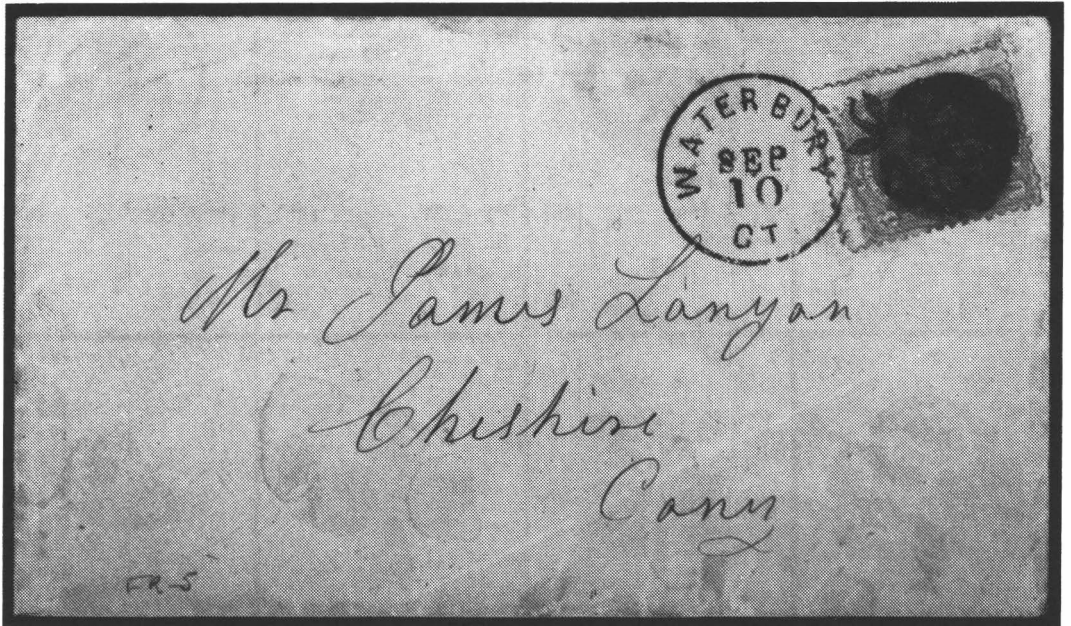 WATERBURY
SEP
10
CT
Mr James Lanyon
Cheshire
Conn
FR-5